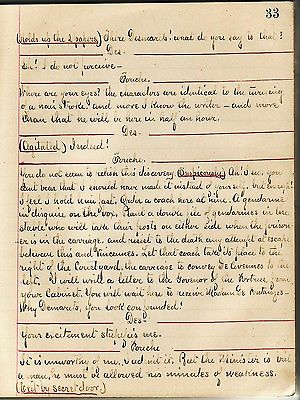 33
(Holds up the 2 papers) There Desmarets! what do you say to that?
Des-
Sir! I do not perceive—
Fouche.
Where are your eyes? the characters are identical to the turning
of a hair stroke! and more I know the writer — and more
than that he will be here in half an hour.
Des.
(Agitated) Indeed!
Fouche.
You do not seem to relish this discovery. (Suspiciously) Ah! I see, you
cant bear that I should have made it instead of yourself. but enough!
I feel I hold him fast. Order a coach here at nine. A gendarme
in disguise on the box. Plant a double file of gendarmes in the
stable who will take their posts on either side when the prison-
er is in the carriage, and resist to the death any attempt at escape
between this and Vincennes. Let that coach take its place to the
right of the Courtyard, the carriage to convey De
rest. I will write a letter to the Governor of the Fortress from
your Cabinet. You will wait here to receive Madame De Fontanges—
Why Desmarets, you look confounded!
Des
Your excitement stupefies me.
Fouche
It is unworthy of me, I admit it. But the Minister is but
a man, he must be allowed his minutes of weakness.
(Exit by secret door.)